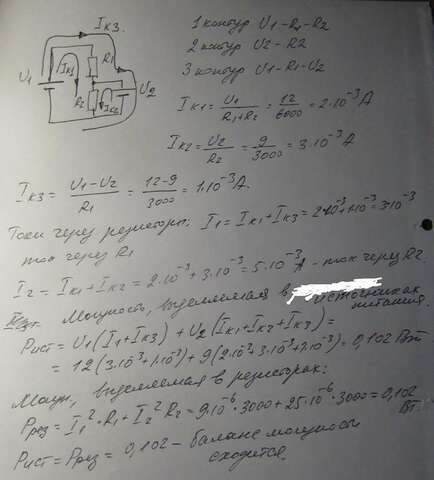 Iк3.
1 контур U1-R1-R2
2 контур U2-R2
3 контур U1-R1-U2
U1
Iк1
R1
R2
Iк2
U2
Iк1 = U1/(R1+R2) = 12/6000 = 2·10⁻³ А
Iк2 = U2/R2 = 9/3000 = 3·10⁻³ А
Iк3 = (U1-U2)/R1 = (12-9)/3000 = 1·10⁻³ А.
Токи через резисторы: I1 = Iк1+Iк3 = 2·10⁻³+1·10⁻³ = 3·10⁻³
ток через R1
I2 = Iк1+Iк2 = 2·10⁻³+3·10⁻³ = 5·10⁻³ А - ток через R2.
Мощность, выделяемая в источниках
питания.
Рист = U1(I1+Iк3) + U2(Iк1+Iк2+Iк3) =
= 12(3·10⁻³+1·10⁻³) + 9(2·10⁻³+3·10⁻³+1·10⁻³) = 0,102 Вт
Мощн, выделяемая в резисторах:
Ррез = I1²·R1 + I2²R2 = 9·10⁻⁶·3000 + 25·10⁻⁶·3000 = 0,102
Вт.
Рист = Ррез = 0,102 - баланс мощности
сходится.